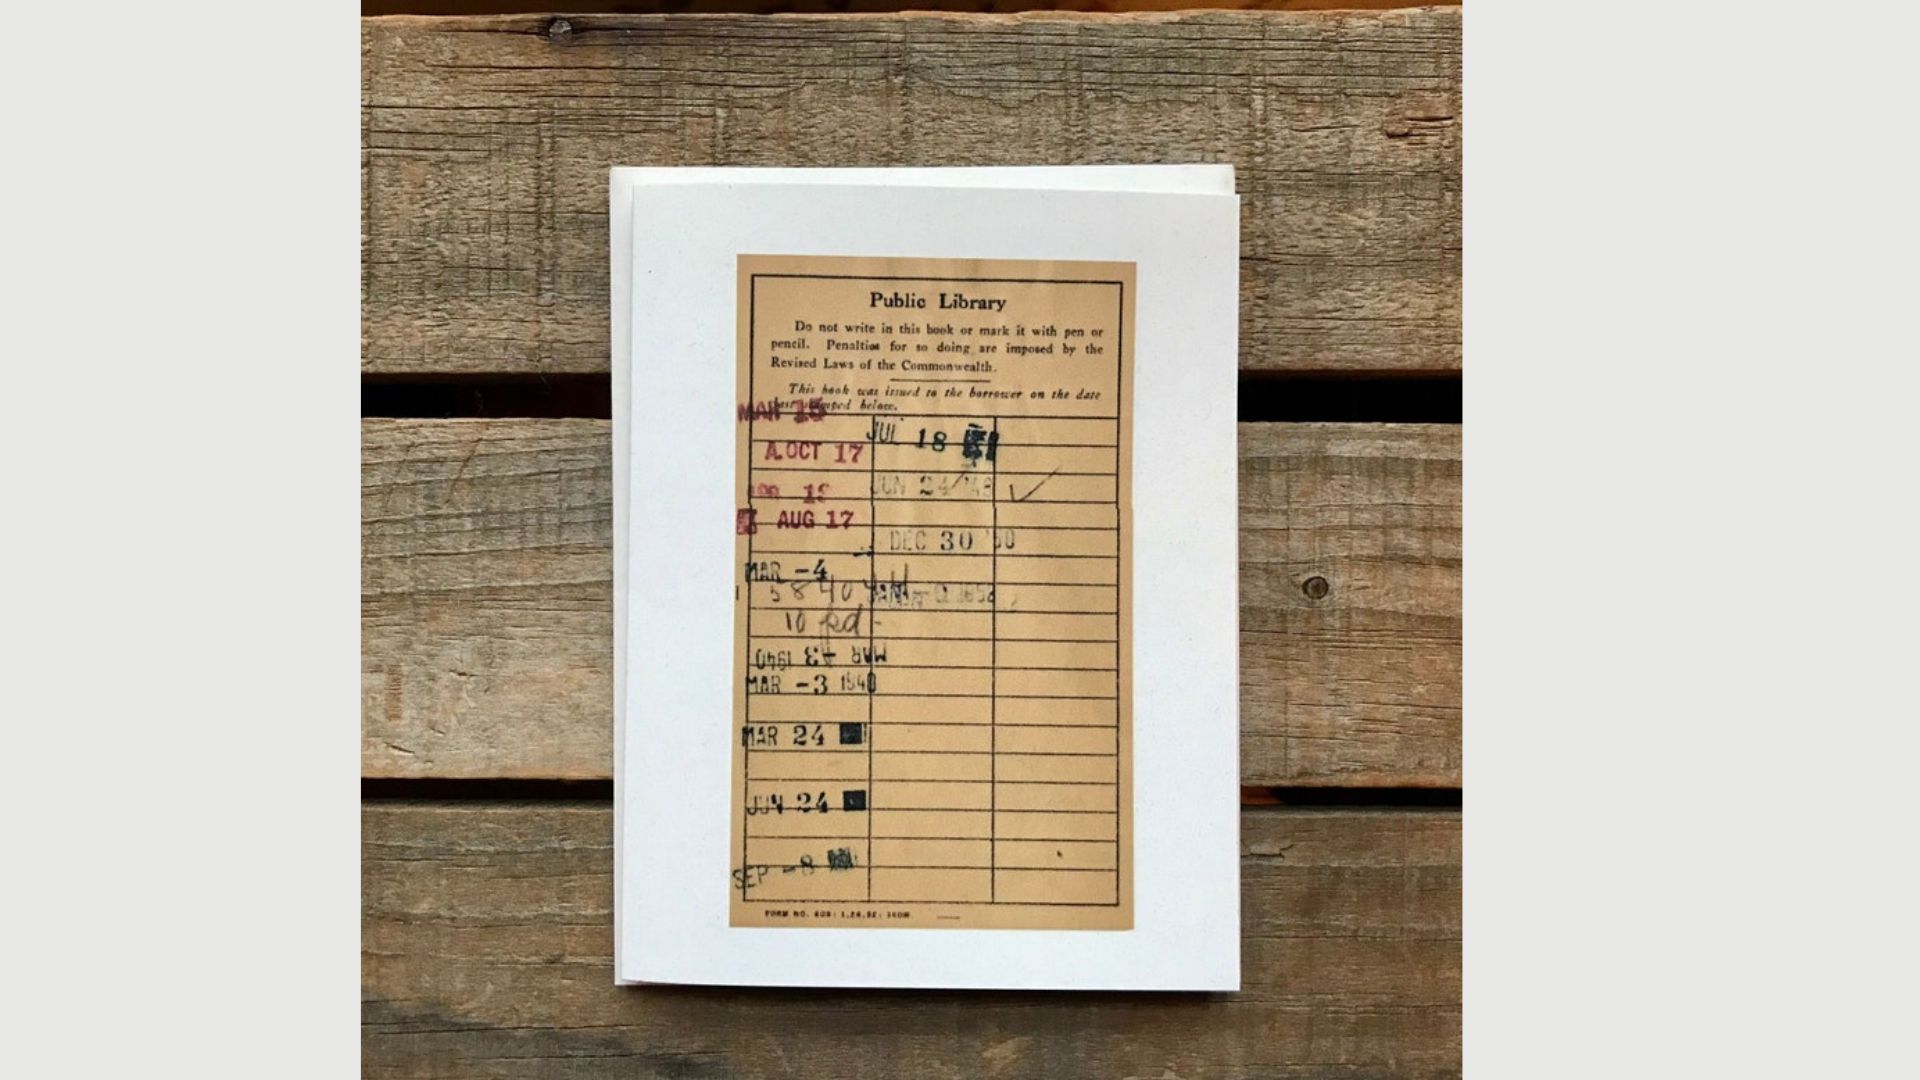 Public Library
Do not write in this book or mark it with pen or
pencil. Penalties for so doing are imposed by the
Revised Laws of the Commonwealth.
This book was issued to the borrower on the date
last stamped below.
MAR 15
A. OCT 17
18
AUG 17
MAR -4
5 8 40
10 pd -
MAR -3 1940
MAR -3 1940
MAR 24
JUN 24
SEP -8
JUL 18
JUN 24 '48
DEC 30 '50
JAN
FORM NO. 609: